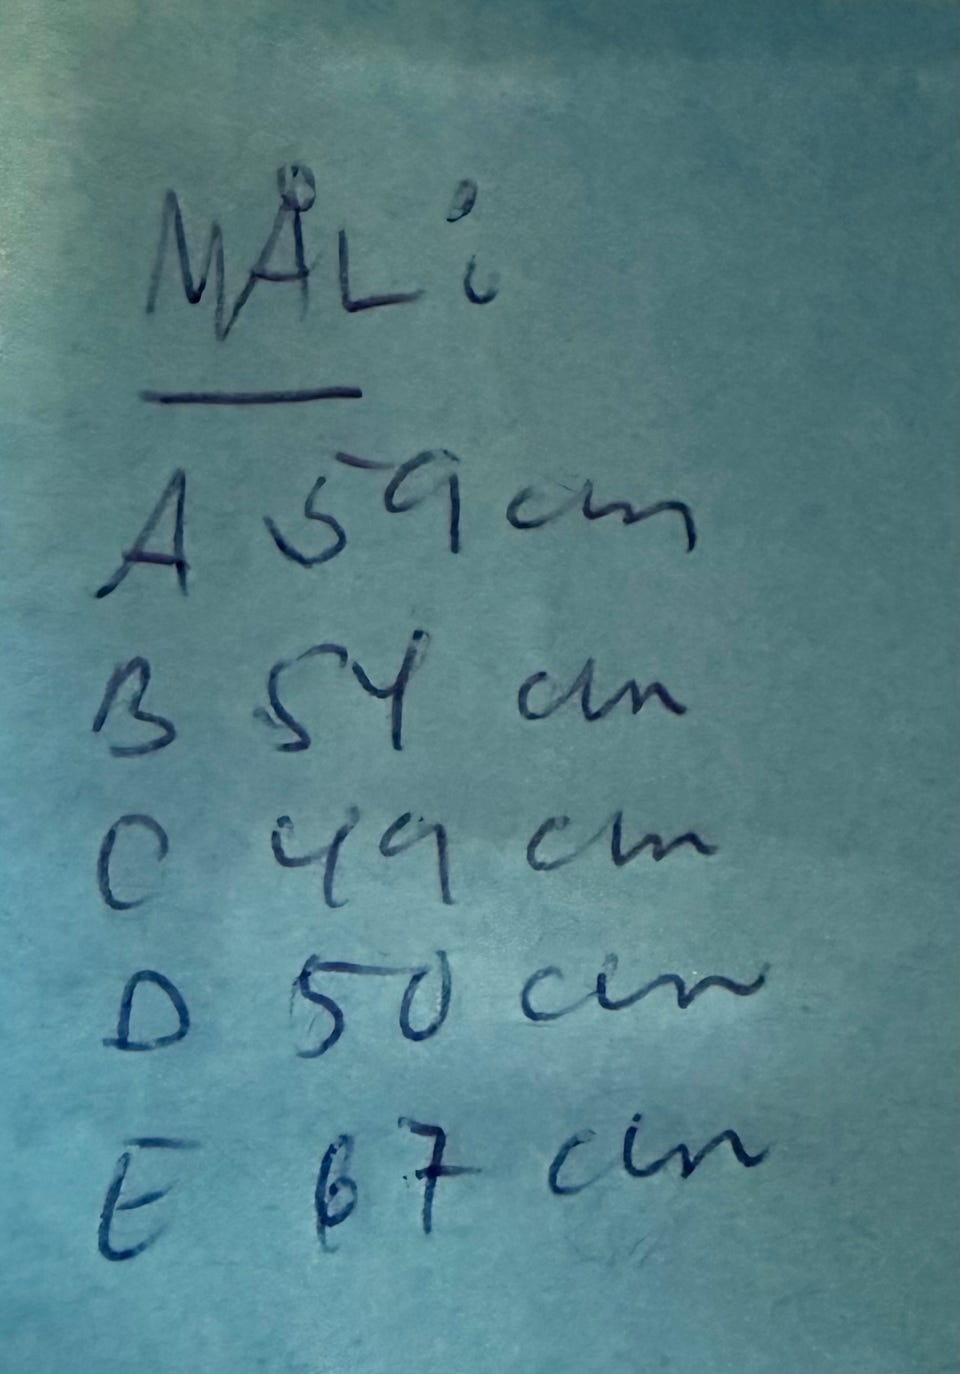 MÅL:
A 59 cm
B 54 cm
C 49 cm
D 50 cm
E 67 cm